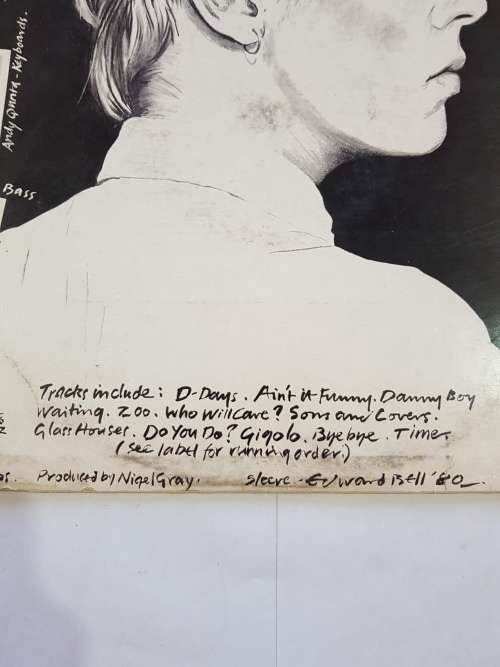 Andy Qunta - Keyboards.
Bass
Tracks include: D-Days. Ain't it Funny. Danny Boy
Waiting. Zoo. Who Will Care? Sons and Lovers.
Glass Houses. Do You Do? Gigolo. Bye bye. Time.
(see label for running order.)
Produced by Nigel Gray. Sleeve - Edward Bell '80